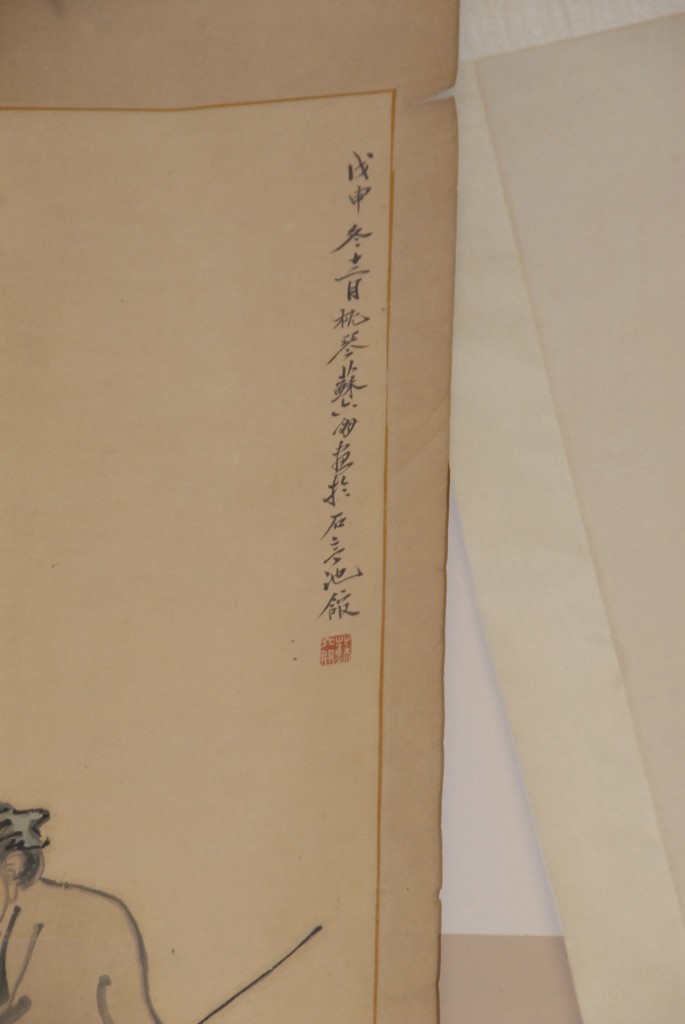 戊申冬十二月枕琴蘇六朋畫於石亭池館
蘇六朋